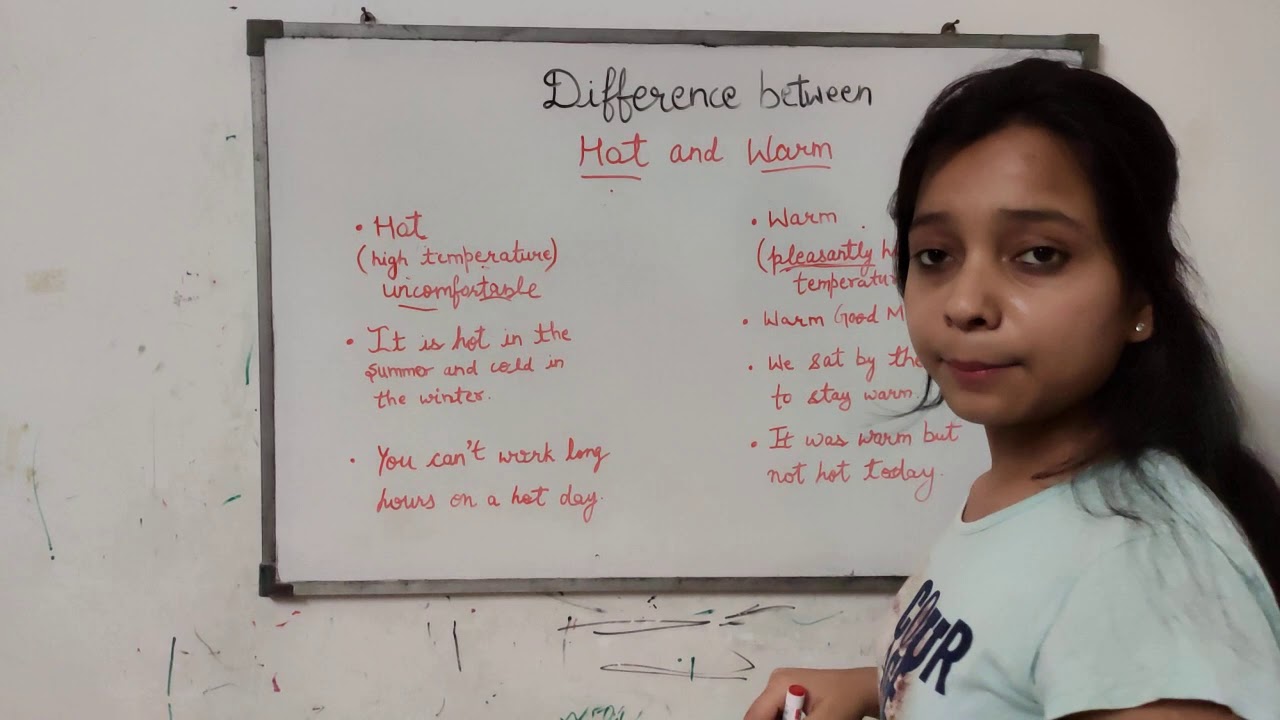 Difference between
Hot and Warm
• Hot
(high temperature)
uncomfortable
• It is hot in the
summer and cold in
the winter.
• You can't work long
hours on a hot day.
• Warm
(pleasantly
• Warm Good M
• We sat by the
to stay warm.
• It was warm but
not hot today.